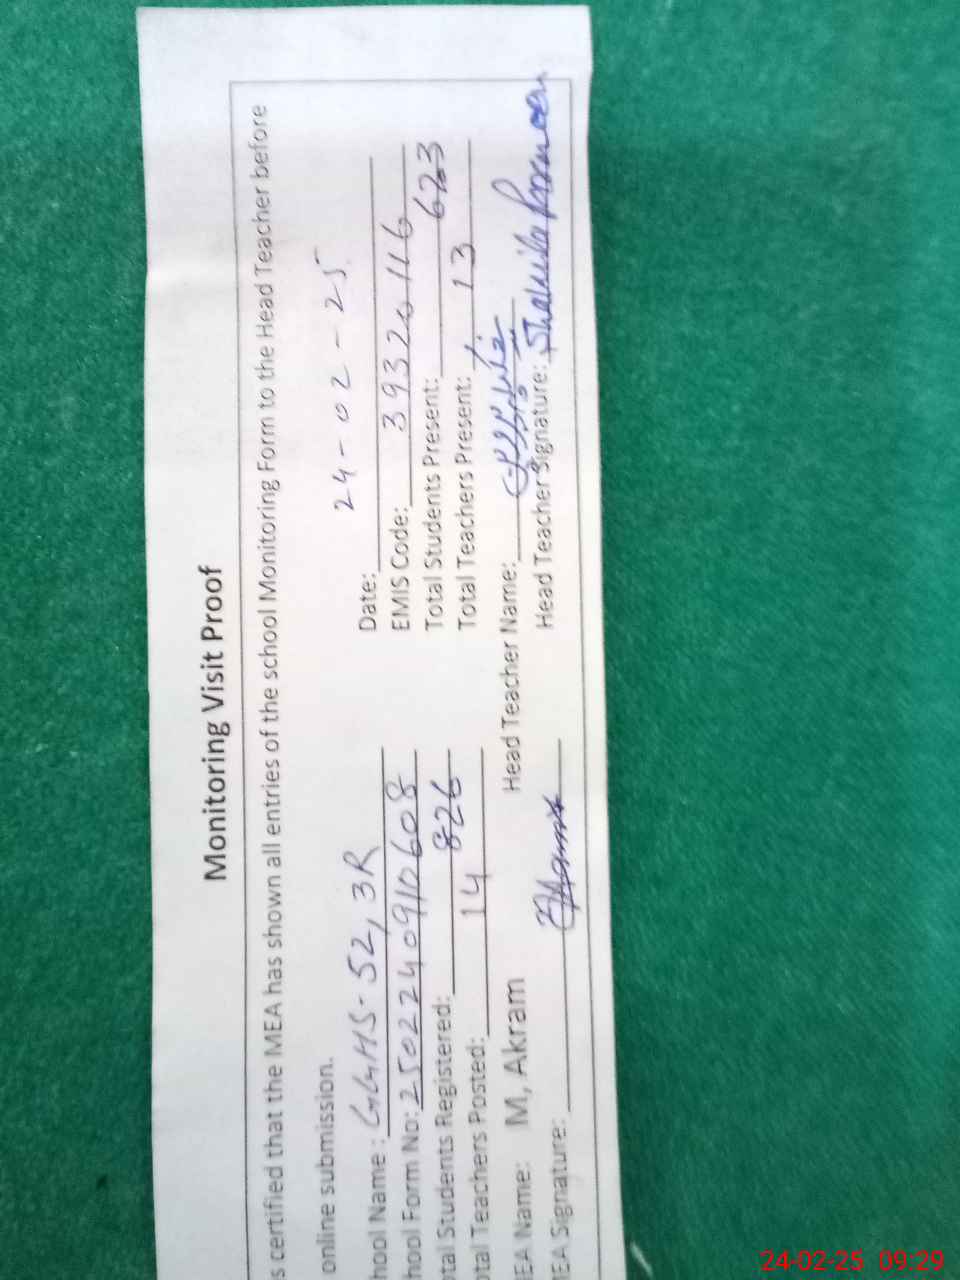 Monitoring Visit Proof
s certified that the MEA has shown all entries of the school Monitoring Form to the Head Teacher before
online submission.
hool Name: GGHS-52, 3R
Date: 24-02-25
hool Form No: 2502240910608
EMIS Code: 39320116
tal Students Registered: 826
Total Students Present: 623
tal Teachers Posted: 14
Total Teachers Present: 13
EA Name: M, Akram
Head Teacher Name:
EA Signature:
Head Teacher Signature: Shakila Parveen
24-02-25 09:29